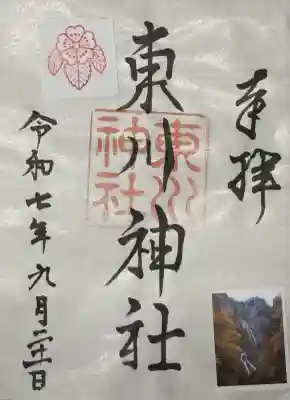 奉拝
東川神社
東川
神社
令和七年九月二十一日